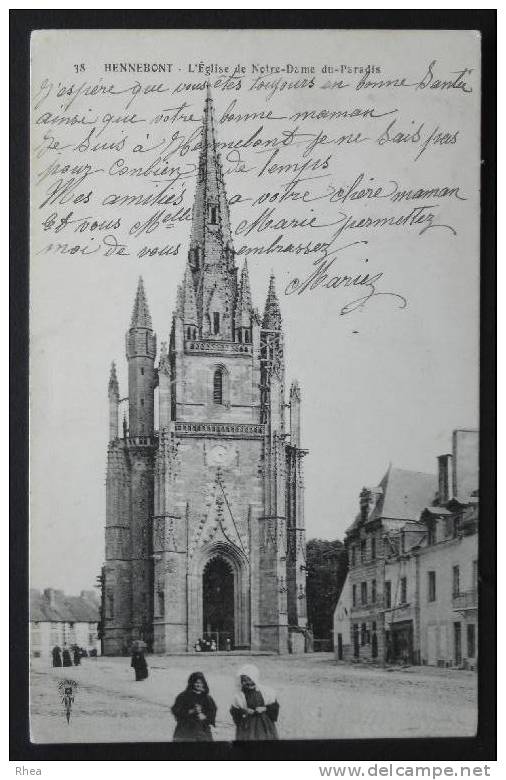 38 HENNEBONT - L'Église de Notre-Dame du-Paradis
J'espére que vous êtes toujours en bonne Santé
ainsi que votre bonne maman
Je Suis à Hennebont je ne Sais pas
pour Conbien de temps
Mes amitiés a votre chère maman
Et vous Melle Marie permettez
moi de vous embrassez
Mariez
Rhea
http://www.delcampe.net